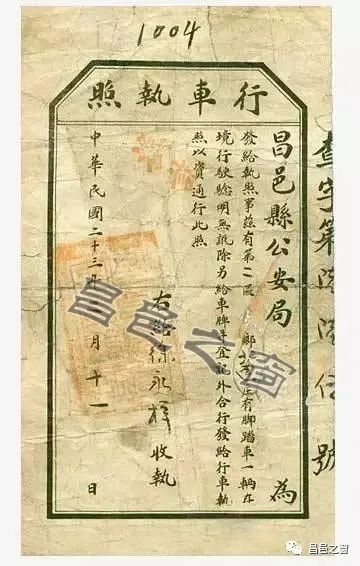 1004
行車執照
查字第 號
昌邑縣公安局 為
發給執照事茲有第二區 鄉 莊有腳踏車一輛在
境行駛驗明無訛除另給車牌並登記外合行發給行車執
照以資通行此照
右給徐永祥 收執
中華民國二十三年 月十一日
昌邑之窗
昌邑之窗